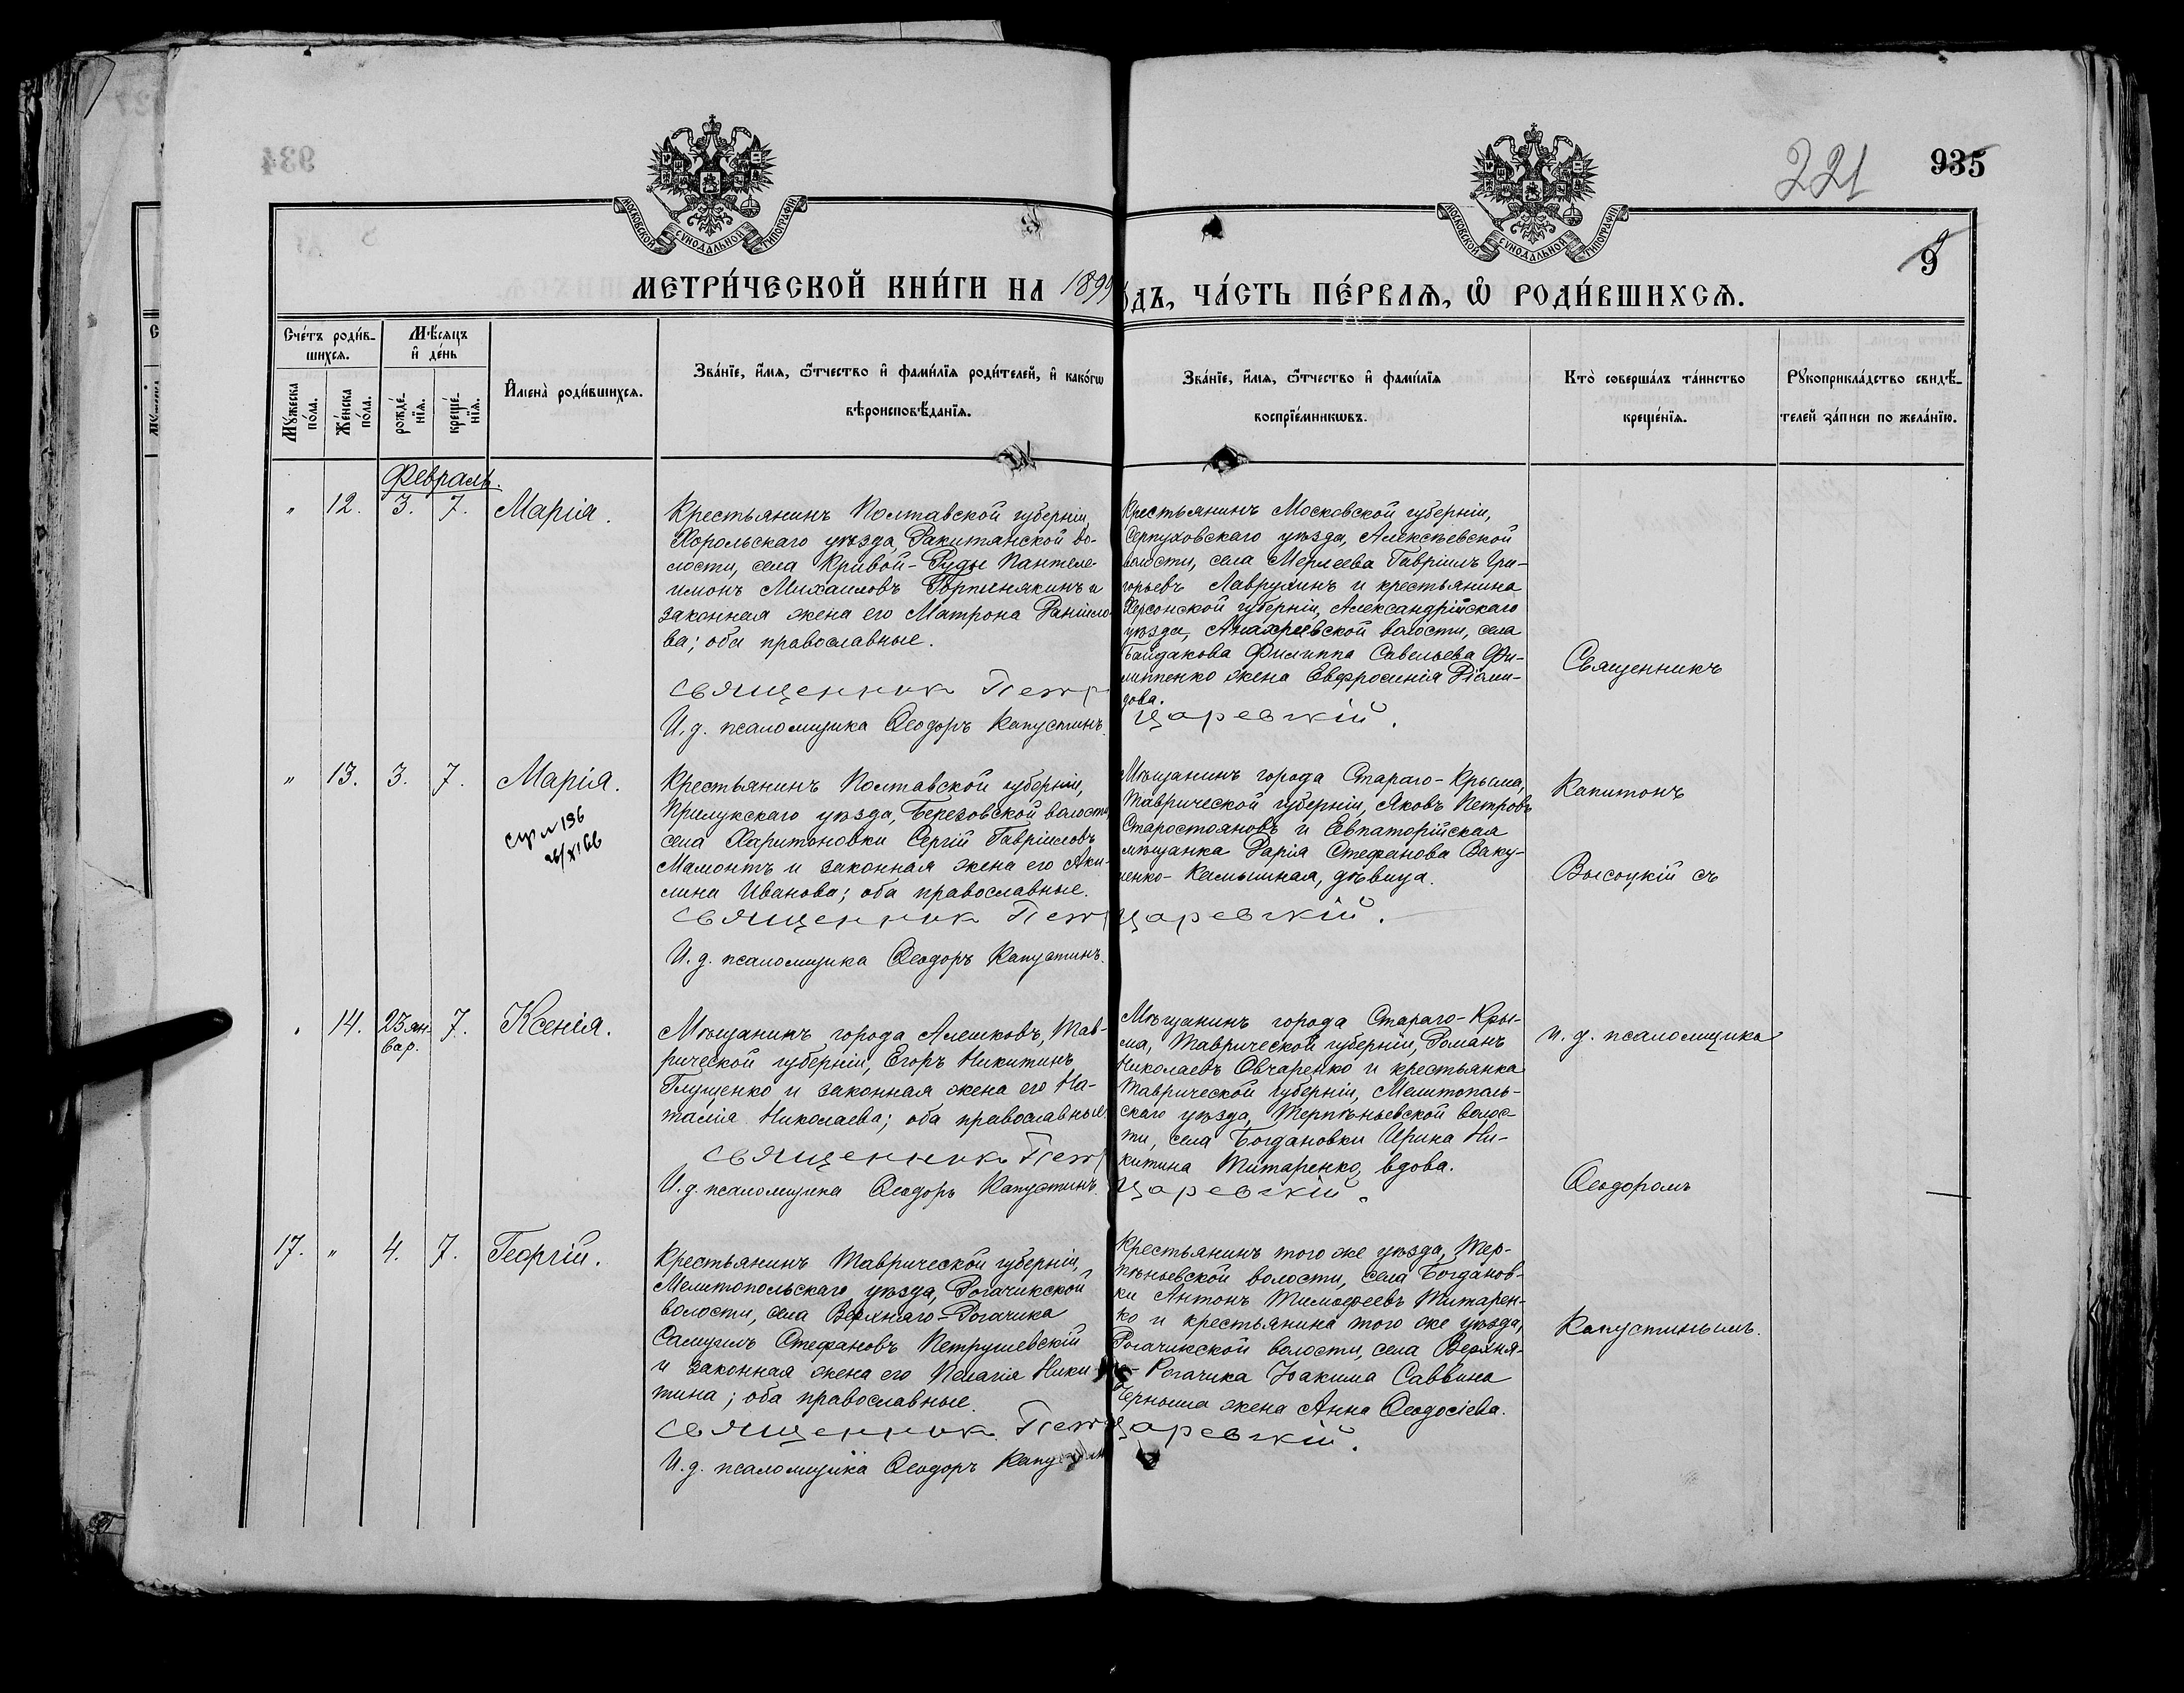 934
221
935
9
МОСКОВСКОЙ СѴНОДАЛЬНОЙ ТИПОГРАФІИ
МОСКОВСКОЙ СѴНОДАЛЬНОЙ ТИПОГРАФІИ
МЕТРИ́ЧЕСКОЙ КНИ́ГИ НА 1899
ОДЪ, ЧА́СТЬ ПЕ́РВАѦ, Ѡ҆ РОДИ́ВШИХСѦ.
Сче́тъ роди́в-
шихсѧ.
Мѣ́сѧцъ
и҆ де́нь
Мꙋ́жеска
по́ла.
Же́нска
по́ла.
рожде́-
нїѧ.
креще́-
нїѧ.
И҆мена̀ роди́вшихсѧ.
Зва́нїе, и҆́мѧ, ѻ҆́тчество и҆ фами́лїѧ роди́телей, и҆ како́гѡ
вѣроисповѣ́данїѧ.
Зва́нїе, и҆́мѧ, ѻ҆́тчество и҆ фами́лїѧ
воспрїе́мникѡвъ.
Кто̀ соверша́лъ та́инство
креще́нїѧ.
Рꙋкоприкла́дство свидѣ́-
телей за́писи по жела́нїю.
Февраль.
" 12. 3. 7. Марія.
Крестьянинъ Полтавской губерніи,
Хорольскаго уѣзда, Ракитянской во-
лости, села Кривой-Руды Пантеле-
имонъ Михаиловъ и
законная жена его Матрона Даніило-
ва; оба православные.
Священник Петр
И. д. псаломщика Ѳеодоръ Капустинъ.
Крестьянинъ Московской губерніи,
Серпуховскаго уѣзда, Алексѣевской
волости, села Мерлеева Гавріилъ Гри-
горьевъ Лаврухинъ и крестьянина
Херсонской губерніи, Александрійскаго
уѣзда, волости, села
Байдакова Филиппа Савельева Фи-
липпенко жена Евфросинія Діоми-
дова.
Царевскій.
Священникъ
" 13. 3. 7. Марія.
26/XI 66
Крестьянинъ Полтавской губерніи,
Прилукскаго уѣзда, Березовской волости,
села Харитоновки Сергій Гавріиловъ
Мамонтъ и законная жена его Аки-
лина Иванова; оба православные.
Священник Петр
И. д. псаломщика Ѳеодоръ Капустинъ.
Мѣщанинъ города Стараго-Крыма,
Таврической губерніи, Яковъ Петровъ
Старостояновъ и Евпаторійская
мѣщанка Дарія Стефанова Ваку-
ленко-Камышная, дѣвица.
Царевскій.
Капитонъ
Высоцкій съ
" 14. 23 ян- 7. Ксенія.
вар.
Мѣщанинъ города Алешковъ, Тав-
рической губерніи, Егоръ Никитинъ
Глущенко и законная жена его На-
талія Николаева; оба православные
Священник Петр
И. д. псаломщика Ѳеодоръ Капустинъ.
Мѣщанинъ города Стараго-Кры-
ма, Таврической губерніи, Романъ
Николаевъ Овчаренко и крестьянка
Таврической губерніи, Мелитополь-
скаго уѣзда, Терпѣньевской волос-
ти, села Богдановки Ирина Ни-
китина Титаренко, вдова.
Царевскій.
и. д. псаломщика
Ѳеодоромъ
17. " 4. 7. Георгій.
Крестьянинъ Таврической губерніи,
Мелитопольскаго уѣзда, Рогачикской
волости, села Верхняго-Рогачика
Самуилъ Стефановъ Петрушевскій
и законная жена его Пелагія Ники-
тина; оба православные.
Священник Петр
И. д. псаломщика Ѳеодоръ Капустинъ
Крестьянинъ того же уѣзда, Тер-
пѣньевской волости, села Богданов-
ки Антонъ Тимоѳеевъ Титарен-
ко и крестьянина того же уѣзда,
Рогачикской волости, села Верхня-
го-Рогачика Іоакима Саввина
Черныша жена Анна Ѳеодосіева.
Царевскій.
Капустинымъ.